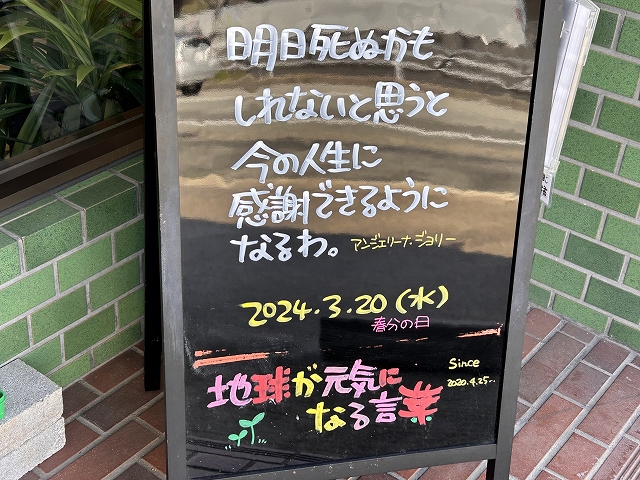 明日死ぬかも
しれないと思うと
今の人生に
感謝できるように
なるわ。 アンジェリーナ・ジョリー
2024.3.20(水)
春分の日
地球が元気に
なる言葉
Since
2020.4.25〜